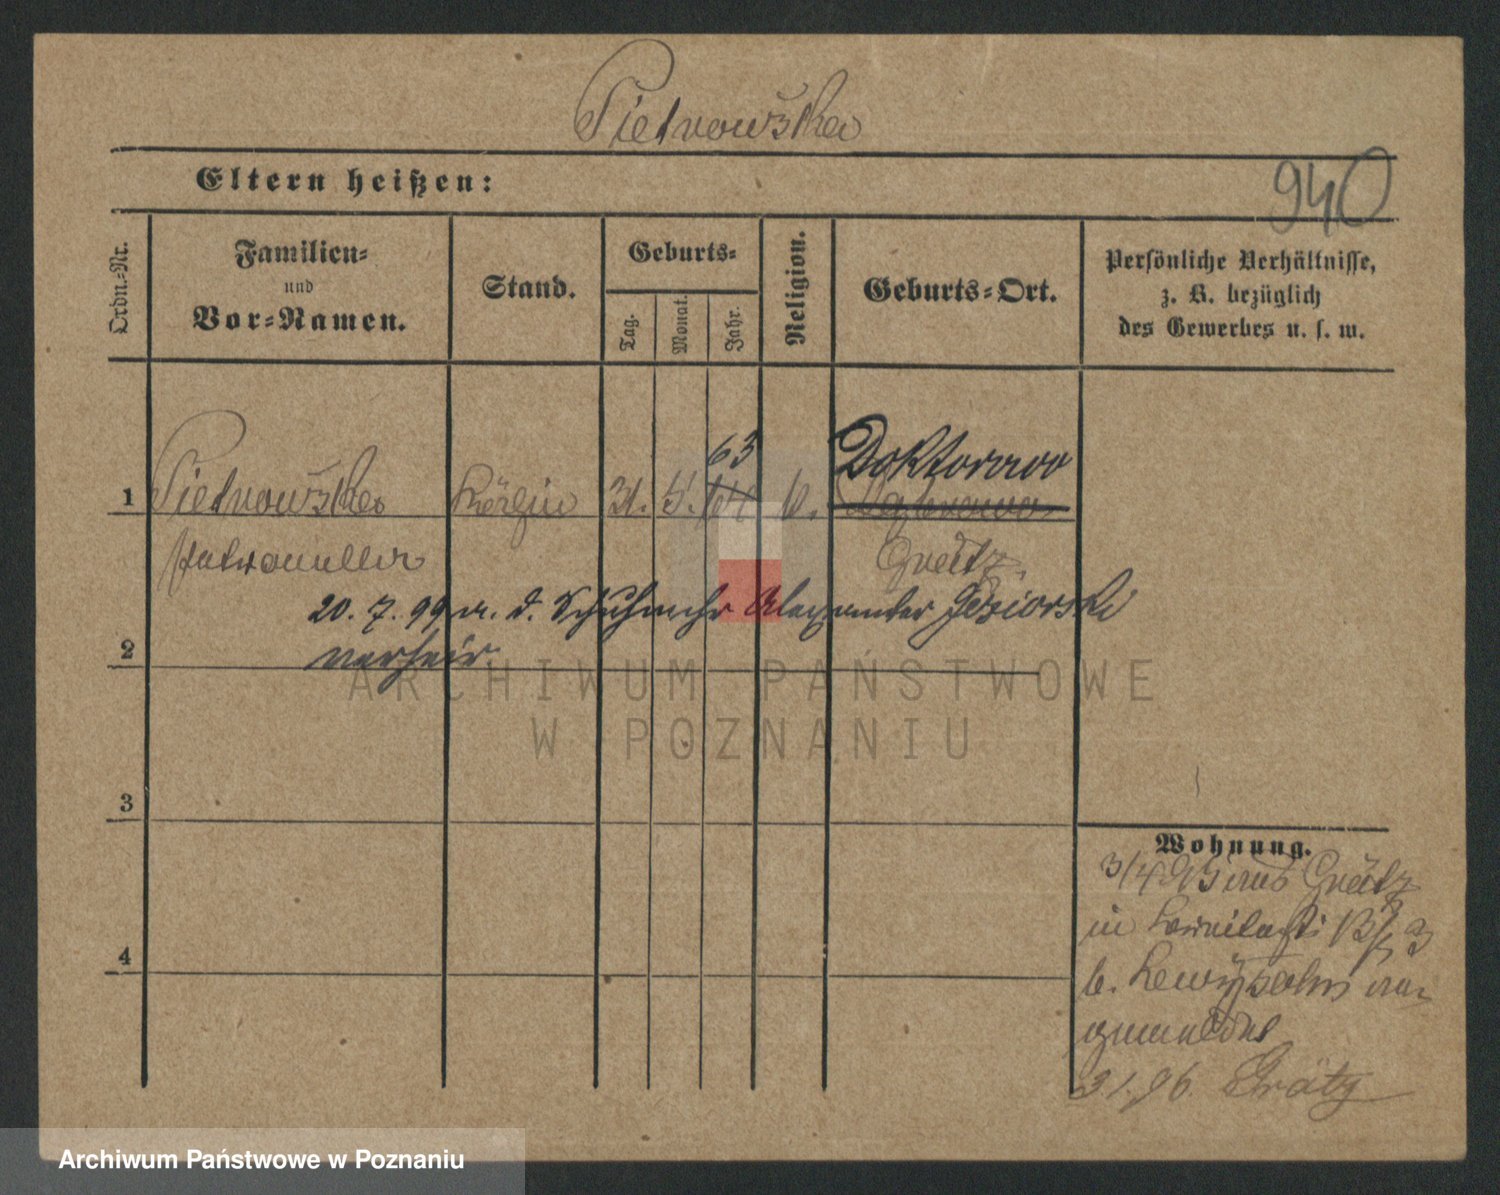 Pietrowska
940
Eltern heißen:
Ordn.=Nr.
Familien=
und
Vor=Namen.
Stand.
Geburts=
Tag.
Monat.
Jahr.
Religion.
Geburts=Ort.
Persönliche Verhältnisse,
z. B. bezüglich
des Gewerbes u. s. w.
63
Doktorowo
1 Pietrowska Köchin 31. 5. k.
Petronella Grätz
20. 7. 99 m. d. Schuhmchr Alexander Jeziorski
verheir.
2
ARCHIWUM PAŃSTWOWE
W POZNANIU
3
Wohnung.
3/4 95 aus Grätz
in 13/ 3
b. Lewysohn an-
gemeldet
4
31. 96. Grätz
Archiwum Państwowe w Poznaniu